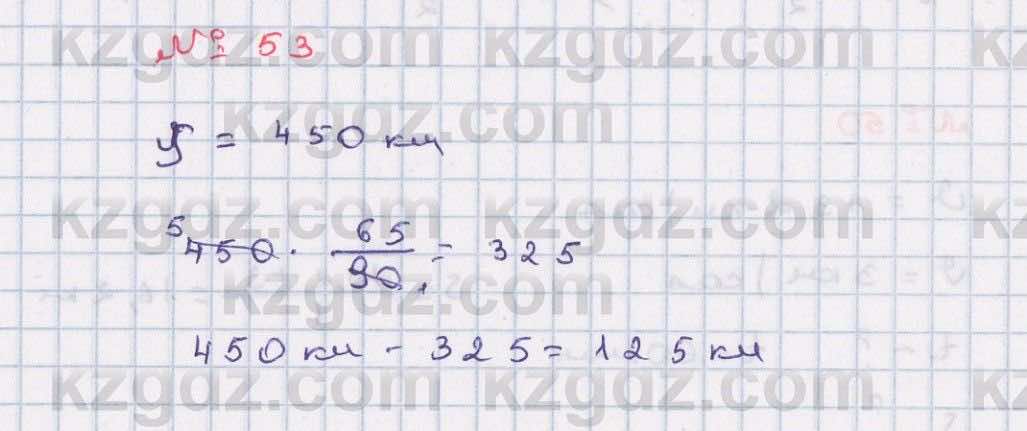 kzgdz.com kzgdz.com kz
№ 53
kzgdz.com kzgdz.com
S = 450 км
kzgdz.com kzgdz.com kz
5
450 · 65/90 = 325
1
kzgdz.com kzgdz.com
450 км - 325 = 125 км
kzgdz.com kzgdz.com kz